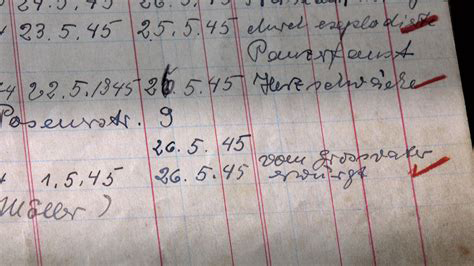 23.5.45 25.5.45 durch explodierte
Panzerfaust
22.5.1945 26.5.45 Herzschwäche
Posenerstr. 9
26.5.45
1.5.45 26.5.45 vom Grossvater
erwürgt
Möller)